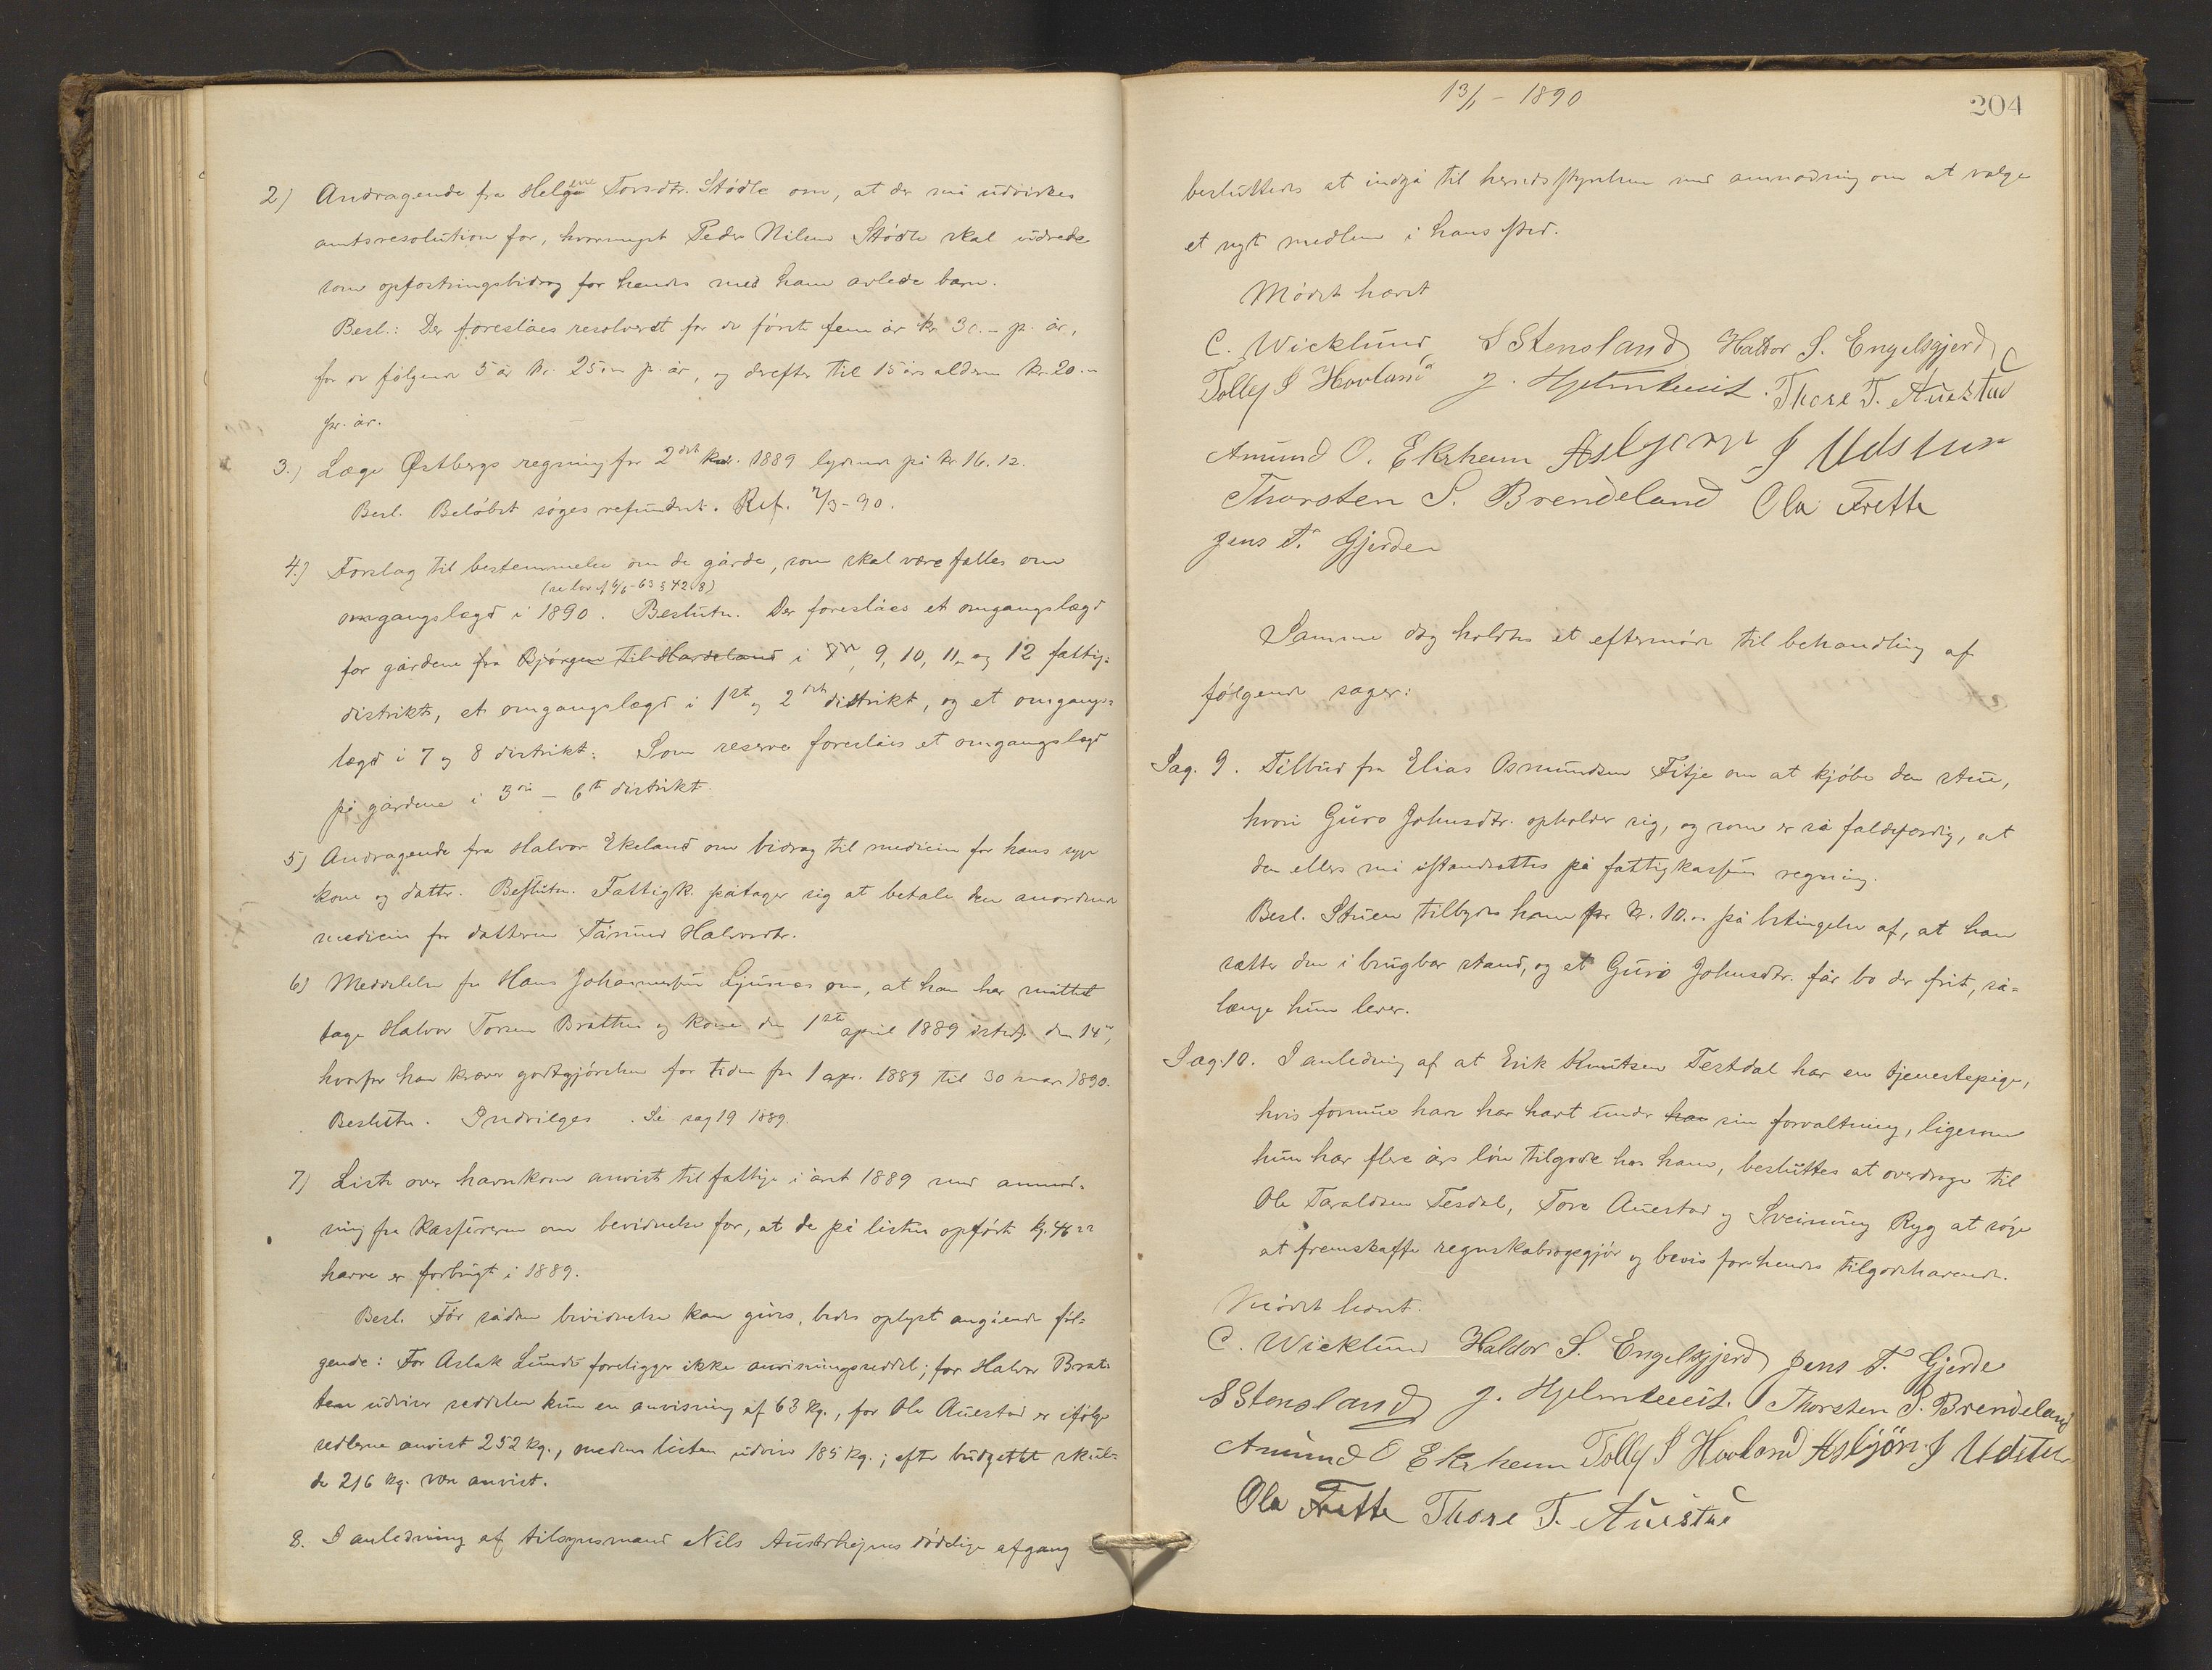 2) Andragende fra Helgine Torsdtr. Stødle om, at der må udvirkes
amtsresolution for, hvormeget Peder Nilsen Stødle skal udrede
som opfostringsbidrag for hendes med ham avlede barn.
Besl.: Der foreslåes resolveret for de første fem år kr. 30.- pr. år,
for de følgende 5 år kr. 25.- pr. år, og derefter til 15 års alderen kr. 20.-
pr. år.
3.) Læge Østbergs regning for 2det kv. 1889 lydende på kr. 16.12.
Besl. Beløbet søges refunderet. Ref. 7/3-90.
4.) Forslag til bestemmelse om de gårde, som skal være fælles om
(se lov af 6/6-63 § 42.8)
omgangslægd i 1890. Beslutn. Der foreslåes et omgangslægd
for gårdene fra Bjørgen til Hardeland i 9, 10, 11, og 12 fattig-
distrikt, et omgangslægd i 1ste og 2det distrikt, og et omgangs-
lægd i 7 og 8 distrikt. Som reserve foreslåes et omgangslægd
på gårdene i 3die – 6te distrikt.
5) Andragende fra Halvor Ekeland om bidrag til medicin for hans syge
kone og datter. Beslutn. Fattigk. påtager sig at betale den anordnede
medicin for datteren Halvorsdtr.
6) Meddelelse fra Hans Johannessen Ljusnes om, at han har måttet
tage Halvor Torsen Bråtthei og kone den 1ste april 1889 istedf. den 14de,
hvorfor han kræver godtgjørelse for tiden fra 1 apr. 1889 til 30 mars 1890.
Beslutn. Indvilges. Se sag 19 1889.
7) Liste over havrekorn anvist til fattige i året 1889 med anmod-
ning fra kassereren om bevidnelse for, at de på listen opførte kg.
havre er forbrugt i 1889.
Besl. Før sådan bevidnelse kan gives, bedes oplyst angående føl-
gende: For Aslak Lunde foreligger ikke anvisningsseddel; for Halvor Brat-
tem udviser seddelen kun en anvisning af 63 kg., for Ole Auestad er ifølge
sedlerne anvist 252 kg., medens listen udviser 185 kg.; efter budgettet skul-
de 216 kg. være anvist.
8. I anledning af tilsynsmand Nils Austrheims dødelige afgang
13/1 - 1890
204
besluttedes at indgå til herredsstyrelsen med anmodning om at vælge
et nyt medlem i hans sted.
Mødet hævet
C. Wicklund S Stensland Haldor S. Engelsgjerd
Tolleif S Hovland J. Hjelmkveit. Thore T. Auestad
Amund O. Ekrheim Asbjørn J Udstu
Thorsten S. Brendeland Ola Frette
Jens T. Gjerde
Samme dag holdtes et eftermøde til behandling af
følgende sager:
Sag. 9. Tilbud fra Elias Osmundsen Fitje om at kjøbe den stue,
hvori Guro Johnsdtr. opholder sig, og som er så faldefærdig, at
den ellers må istandsættes på fattigkassens regning.
Besl. Stuen tilbydes ham for kr. 10.- på betingelse af, at han
sætter den i brugbar stand, og at Guro Johnsdtr. får bo der frit, så-
længe hun lever.
Sag. 10. I anledning af at Erik Knutsen Tesdal har en tjenestepige,
hvis formue han har havt under han sin forvaltning, ligesom
hun har flere års løn tilgode hos ham, besluttes at overdrage til
Ole Taraldsen Tesdal, Tore Auestad og Sveinung Ryg at søge
at fremskaffe regnskabsopgjør og bevis for hendes tilgodehavende.
Mødet hævet.
C. Wicklund Haldor S. Engelsgjerd Jens T. Gjerde
S Stensland J. Hjelmkveit. Thorsten S. Brendeland
Amund O Ekrheim Tolleif S Hovland Asbjørn J Udstu
Ola Frette Thore T. Auestad